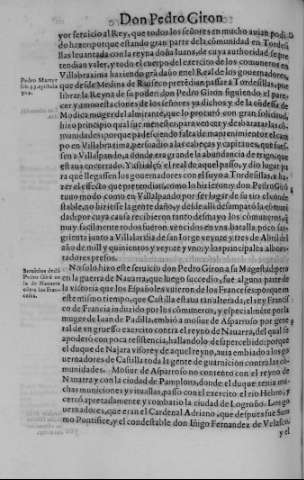 Don Pedro Giron
por seruicio al Rey, que todos los señores en mucho auian podi-
do hazer: porque estando gran parte de la comunidad en Tordesi
llas leuantada con la reyna doña Iuana, de cuya authoridad se pre
tendian valer, y todo el cuerpo del exercito de los comuneros en
Villabraxima haziendo grã daño en el Real de los gouernadores,
Pedro Martyr
que desde Medina de Rioseco pretendian passar a Tordesillas, por
librar la Reyna de su poder: don Pedro Giron siguiendo el
y amonestaciones de los señores ya dichos y de la cõdessa de
Modica muger del almirante, que lo procurò con gran solicitud,
hizo principio qual fue menester para vencer y desbaratar las co-
munidades: porque padesciendo falta de mantenimientos el cam
po en Villabraxima, persuadio a las cabeças y capitanes, que fues-
sen a Villalpando, a donde era grande la abundancia de trigo, que
estaua encerrado. Y assi alçò el real de aquel passo, y dio lugar pa
ra que llegassen los gouernadores con el suyo a Tordesillas, a ha-
zer el effecto que pretendian, como lo hizieron: y don Pedro Girõ
tuuo modo como en Villalpando por ser lugar de su tio el conde
stable, no hiziesse la gente daño, y desde alli desamparò la comuni
dad: por cuya causa recibieron tanto desmayo los comuneros, q̃
muy facilmente todos fueron vencidos en vna batalla poco san-
grienta junto a Villalar dia de san Iorge veynte y tres de Abril del
año de mil y quinientos y veynte y vno: y los principales alboro-
tadores.
Seruicios de dõ
Pedro Girõ en
la de Nauarra
cõtra los Fran-
ceses.
No solo hizo este seruicio don Pedro Giron a su Magestad: pero
en la guerra de Nauarra, que luego succedio, fue alguna parte de
la victoria que los Españoles vuieron de los Franceses: porque en
este mismo tiempo, que Castilla estaua tan alterada, el rey Francis
co de Francia inducido por los comuneros, y especialmẽte por la
muger de Iuan de Padilla, embiò a mosiur de Asparroso por gene
ral de vn gruesso exercito contra el reyno de Nauarra, del qual se
apoderò con poca resistencia, hallandolo desapercebido: porque
el duque de Najara visorey de aquel reyno, auia embiado a los go
uernadores de Castilla toda la gente de guarnicion contra las co-
munidades. Mosiur de Asparroso no contento con el reyno de
Nauarra y con la ciudad de Pamplona, donde el duque tenia mu-
chas municiones y passò con el exercito el rio Hebro, y
cercò apretadamente y combatio la ciudad de Logroño. Los go
uernadores, que eran el Cardenal Adriano, que despues fue Sum
mo Pontifice, y el condestable don Iñigo Fernandez de Velasco,
y el